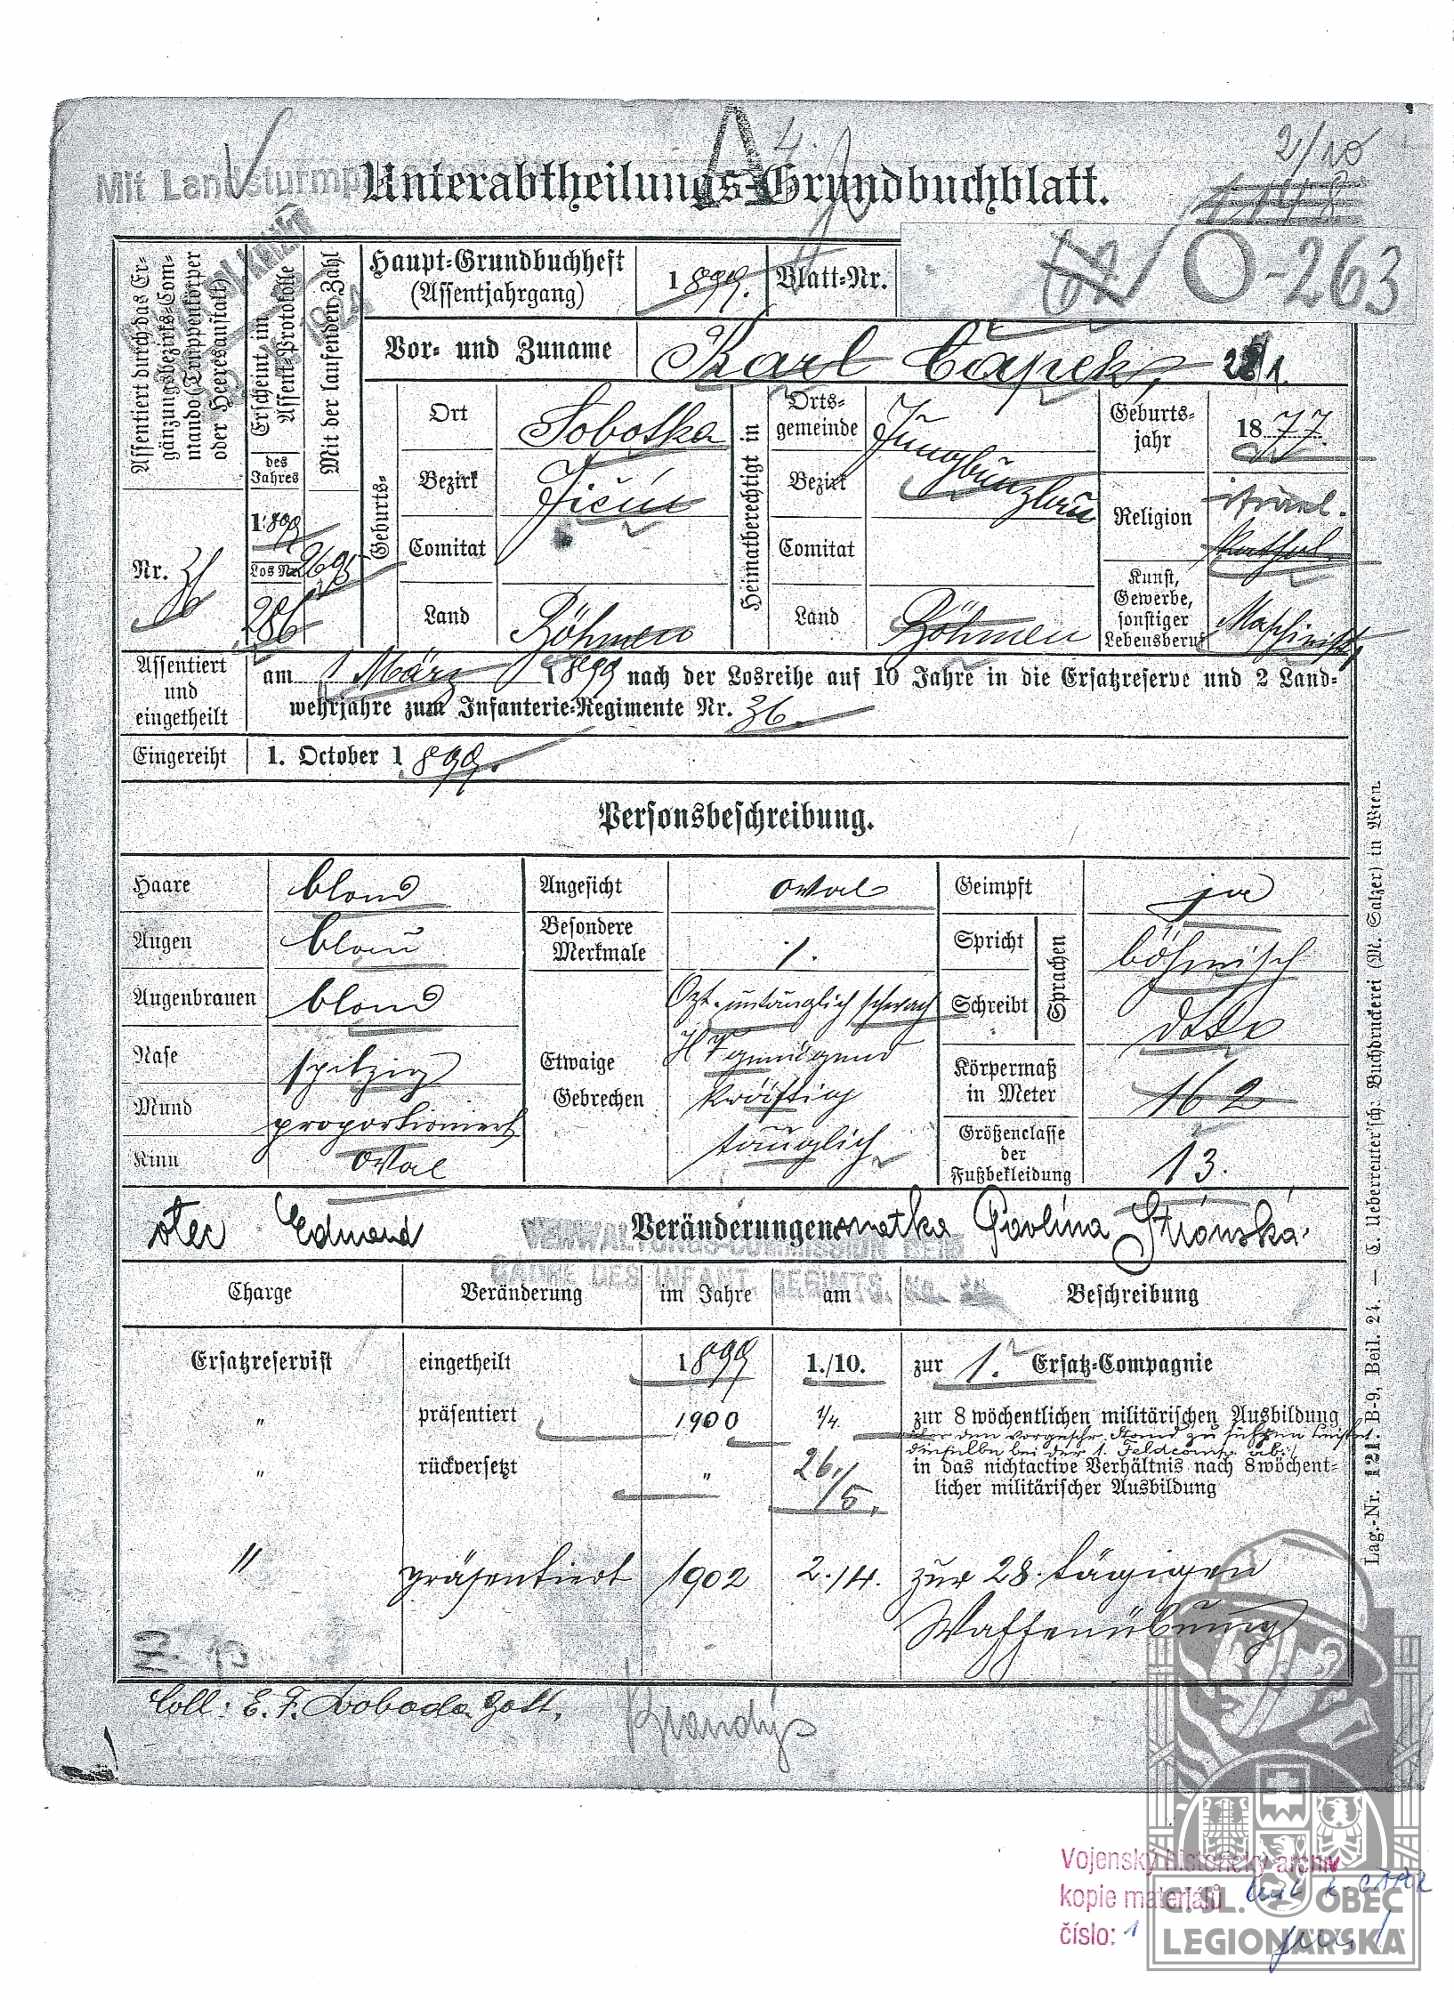 4.
2/10
Mit Landsturmp
Unterabtheilungs-Grundbuchblatt.
O-263
Assentiert durch das Er-
gänzungsbezirks-Com-
mando (Truppenkörper
oder Heeresanstalt)
Nr. 36
Erscheint im
Assent-Protokolle
des
Jahres
1899
Los Nr.
286
Mit der laufenden Zahl
2695
Haupt-Grundbuchheft
(Assentjahrgang)
1899.
Blatt-Nr.
Vor- und Zuname
Karl Čapek,
Geburts-
Ort
Sobotka
Bezirk
Jičín
Comitat
Land
Böhmen
Heimatberechtigt in
Orts-
gemeinde
Bezirk
Jungbunzlau
Comitat
Land
Böhmen
Geburts-
jahr
1877.
Religion
israel.
kathol.
Kunst,
Gewerbe,
sonstiger
Lebensberuf
Maschinist,
Assentiert
und
eingetheilt
am 1 März 1899 nach der Losreihe auf 10 Jahre in die Ersatzreserve und 2 Land-
wehrjahre zum Infanterie-Regimente Nr. 36.
Eingereiht
1. October 1899.
Personsbeschreibung.
Haare
blond
Augen
blau
Augenbrauen
blond
Nase
spitzig
Mund
proportioniert
Kinn
oval
Angesicht
oval
Besondere
Merkmale
./.
Etwaige
Gebrechen
untauglich schwach
genügend
kräftig
tauglich
Geimpft
ja
Spricht
Schreibt
Sprachen
böhmisch
dtto
Körpermaß
in Meter
162
Größenclasse
der
Fußbekleidung
13.
otec Edmund Veränderungen. matka Pavlína Stránská.
VERWALTUNGS-COMMISSION
CADRE DES INFANT. REGIMTS. No. 36
Charge Veränderung im Jahre am Beschreibung
Ersatzreservist eingetheilt 1899 1./10. zur 1. Ersatz-Compagnie
" präsentiert 1900 1/4. zur 8 wöchentlichen militärischen Ausbildung
über den vorgeschr. Stand zu führen leistet
dieselbe bei der 1. Feldcomp. ab.
" rückversetzt " 26./5. in das nichtactive Verhältnis nach 8 wöchent-
licher militärischer Ausbildung
" präsentiert 1902 2./4. zur 28. tägigen
Waffenübung
Coll: E. F. Svoboda
Brandýs
Lag.-Nr. 121. B-9, Beil. 24. — C. Ueberreuter'sche Buchdruckerei (M. Salzer) in Wien.
Vojenský historický archiv
kopie materiálů
číslo: 1
Č.SL. OBEC
LEGIONÁŘSKÁ